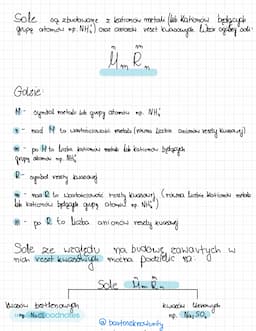 Sole są zbudowane z kationów metali (lub kationów będących
grupą atomów np. NH₄⁺) oraz anionów reszt kwasowych. Wzór ogólny soli:
n m
MₘRₙ
Gdzie:
M - symbol metalu lub grupy atomów np. NH₄⁺
n - nad M to wartościowość metalu (równa liczbie anionów reszty kwasowej)
m - po M to liczba kationów metalu lub kationów będących
grupą atomów np. NH₄⁺
R - symbol reszty kwasowej
m - nad R to wartościowość reszty kwasowej (równa liczbie kationów metalu
lub kationów będących grupą atomów np. NH₄⁺)
n - po R to liczba anionów reszty kwasowej
Sole ze względu na budowę zawartych w
nich reszt kwasowych można podzielić na:
Sole MₘRₙ
kwasów beztlenowych kwasów tlenowych
np. NaCl np. Na₂SO₄